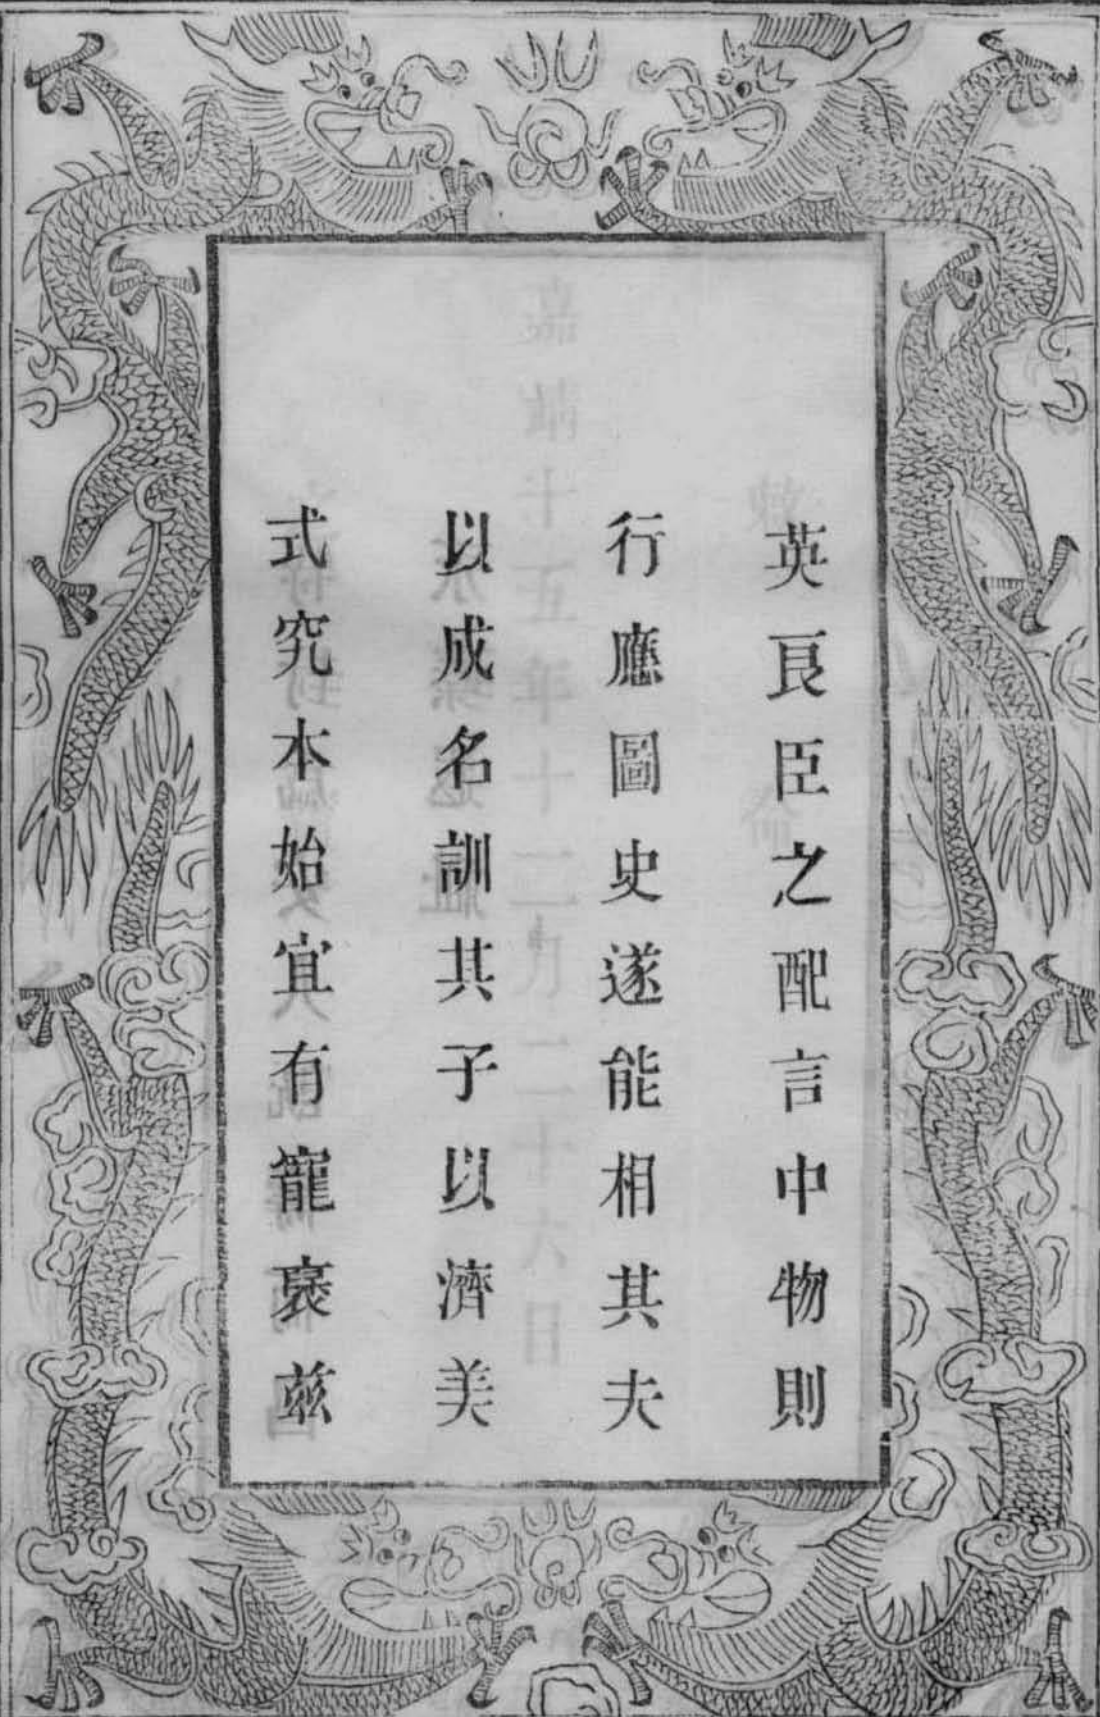 英良臣之配言中物則
行應圖史遂能相其夫
以成名訓其子以濟美
式究本始宜有寵褒兹